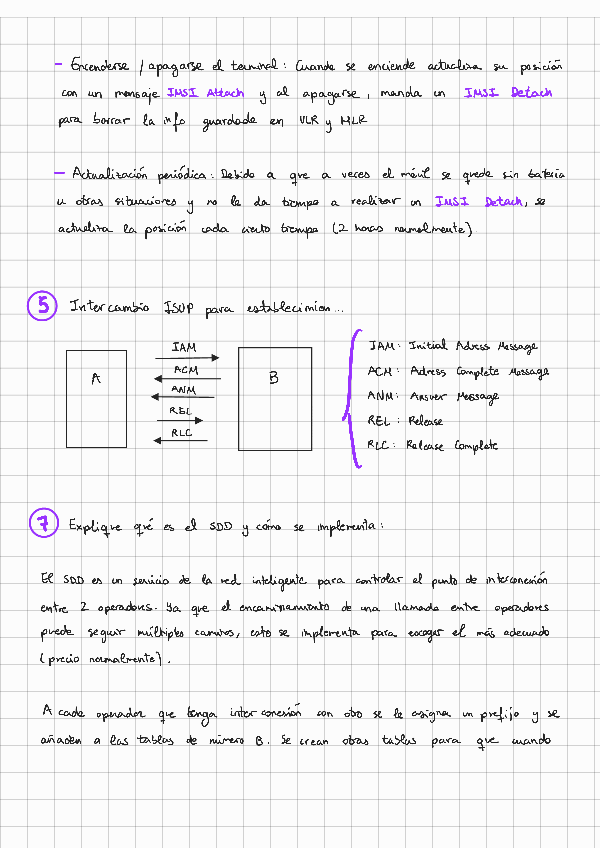 - Encenderse / apagarse el terminal: Cuando se enciende actualiza su posición
con un mensaje IMSI Attach y al apagarse, manda un IMSI Detach
para borrar la info guardada en VLR y HLR
- Actualización periódica: Debido a que a veces el móvil se quede sin batería
u otras situaciones y no le da tiempo a realizar un IMSI Detach, se
actualiza la posición cada cierto tiempo (2 horas normalmente)
5 Intercambio ISUP para establecimien...
A
B
IAM
ACM
ANM
REL
RLC
IAM: Initial Adress Message
ACM: Adress Complete Message
ANM: Answer Message
REL: Release
RLC: Release Complete
7 Explique qué es el SDD y cómo se implementa:
El SDD es un servicio de la red inteligente para controlar el punto de interconexión
entre 2 operadores. Ya que el encaminamiento de una llamada entre operadores
puede seguir múltiples caminos, esto se implementa para escoger el más adecuado
(precio normalmente).
A cada operador que tenga interconexión con otro se le asigna un prefijo y se
añaden a las tablas de número B. Se crean otras tablas para que cuando